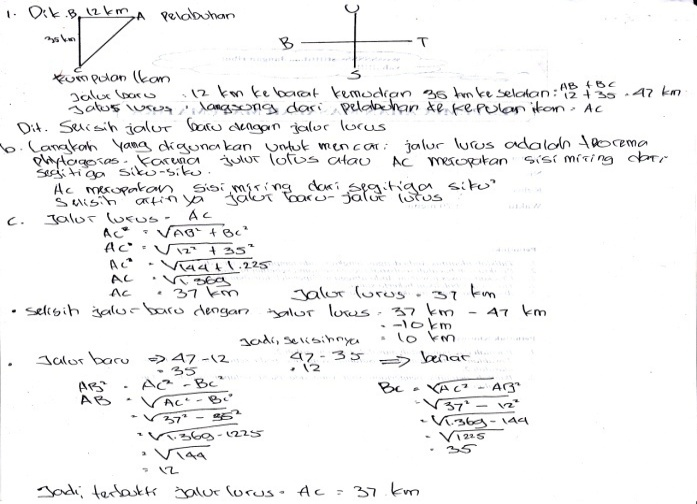 1. Dik. B 12 km A Pelabuhan
35 km
C
Kumpulan Ikan
U
B T
S
Jalur baru : 12 km ke barat kemudian 35 km ke selatan : AB + BC
12 + 35 = 47 km
Jalur lurus : langsung dari pelabuhan ke kepulan ikan = AC
Dit. Selisih jalur baru dengan jalur lurus
b. Langkah yang digunakan untuk mencari jalur lurus adalah teorema
phytagoras. Karena jalur lurus atau AC merupakan sisi miring dari
segitiga siku-siku.
AC merupakan sisi miring dari segitiga siku²
Selisih artinya jalur baru - jalur lurus
c. Jalur lurus = AC
AC² = √AB² + BC²
AC² = √12² + 35²
AC² = √144 + 1.225
AC = √1.369
AC = 37 km Jalur lurus = 37 km
• Selisih jalur baru dengan jalur lurus = 37 km - 47 km
= -10 km
Jadi, selisihnya = 10 km
• Jalur baru ⇒ 47 - 12 47 - 35 ⇒ benar
= 35 = 12
AB² = AC² - BC²
AB = √AC² - BC²
= √37² - 35²
= √1.369 - 1225
= √144
= 12
BC = √AC² - AB²
= √37² - 12²
= √1.369 - 144
= √1225
= 35
Jadi, terbukti jalur lurus = AC = 37 km